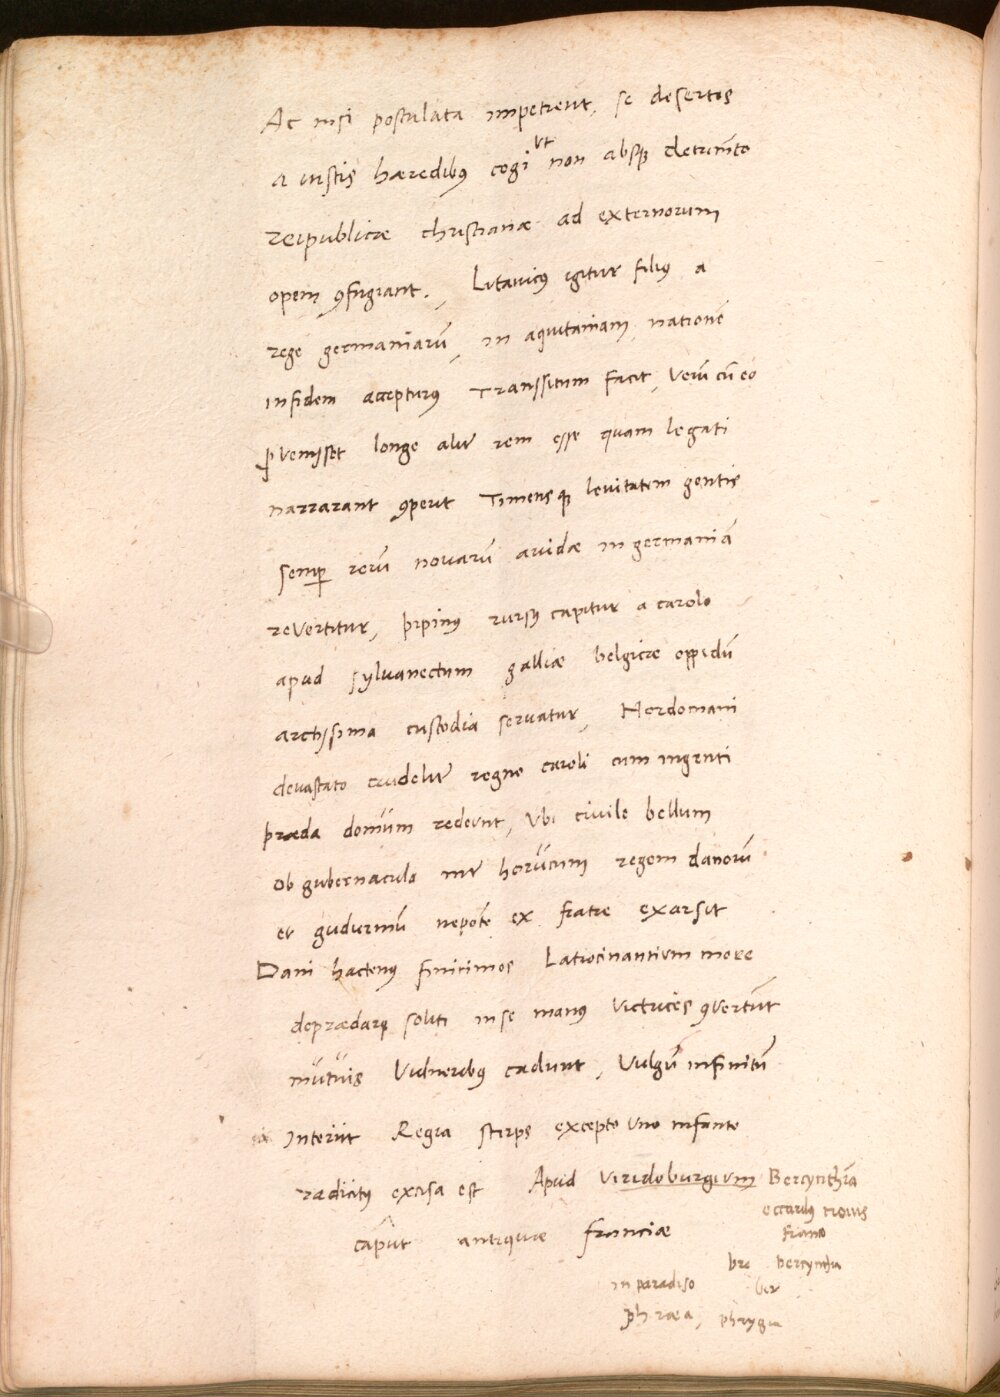 Ac nisi postulata impetrent, se desertos
a iustis hæredibꝰ cogi vt non absqꝫ detrim̄to
reipublicæ christianæ ad externorum
opem ꝯfugiant. Litauicꝰ igitur filiꝰ a
rege germaniarū, in aquitaniam, nationē
infidem accepturꝰ Transsitum facit, verū cū eo
ꝑvenisset longe alir̄ rem esse quam legati
narrarant ꝯperit Timensqꝫ levitatem gentis
semꝑ rerū novarū avidæ in germaniā
revertitur, pipinꝰ rursꝰ capitur a carolo
apud sylvanectum galliæ belgicæ oppidū
arctissima custodia servatur, Nordomani
devastato crudelir̄ regno caroli cum ingenti
præda domum redeunt, Vbi civile bellum
ob gubernacula intr̄ horūcum regem danorū
et gudurmū nepotē ex fratre exarsit
Dani hactenꝰ finitimos Latrocinantium more
deprædarꝫ soliti in se manꝰ victrices ꝯvertūt
mutuis vulneribꝰ cadunt, Vulgū infinitū
interiit Regia stirps excepto vno infante
radicitꝰ excisa est Apud viridoburgium Bercynthia
occiduꝰ
caput antiquæ franciæ
bre bercynthia
in paradiso ber
phræa, phrygia